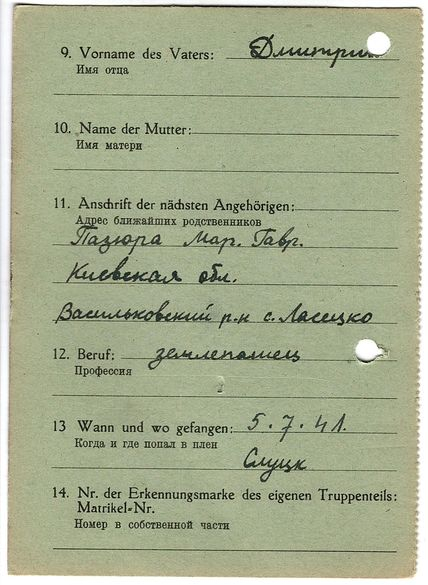 9. Vorname des Vaters: Дмитрий
Имя отца
10. Name der Mutter:
Имя матери
11. Anschrift der nächsten Angehörigen:
Адрес ближайших родственников
Пазюра Мар. Гавр.
Киевская обл.
Васильковский р-н с.
12. Beruf:
Профессия
13 Wann und wo gefangen: 5.7.41.
Когда и где попал в плен
Слуцк
14. Nr. der Erkennungsmarke des eigenen Truppenteils:
Matrikel-Nr.
Номер в собственной части